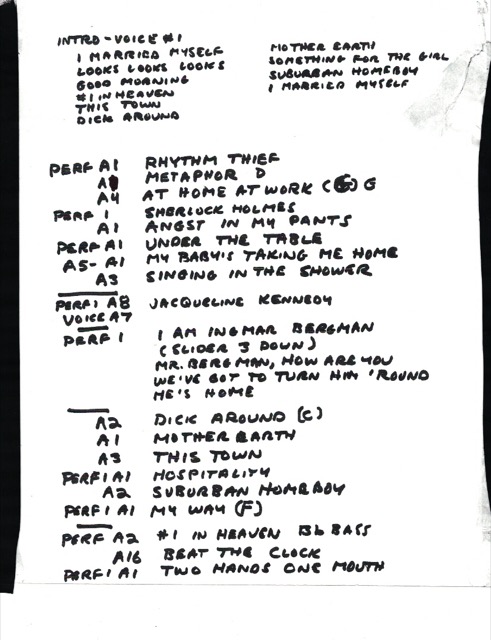 INTRO - VOICE #1
I MARRIED MYSELF
LOOKS LOOKS LOOKS
GOOD MORNING
#1 IN HEAVEN
THIS TOWN
DICK AROUND
MOTHER EARTH
SOMETHING FOR THE GIRL
SUBURBAN HOMEBOY
I MARRIED MYSELF
PERF A1 RHYTHM THIEF
METAPHOR D
A4 AT HOME AT WORK (G) G
PERF 1 SHERLOCK HOLMES
A1 ANGST IN MY PANTS
PERF A1 UNDER THE TABLE
A5- A1 MY BABY'S TAKING ME HOME
A3 SINGING IN THE SHOWER
PERF1 A8 JACQUELINE KENNEDY
VOICE A7
PERF 1 I AM INGMAR BERGMAN
(SLIDER 3 DOWN)
MR. BERGMAN, HOW ARE YOU
WE'VE GOT TO TURN HIM 'ROUND
HE'S HOME
A2 DICK AROUND (C)
A1 MOTHER EARTH
A3 THIS TOWN
PERF1 A1 HOSPITALITY
A2 SUBURBAN HOMEBOY
PERF1 A1 MY WAY (F)
PERF A2 #1 IN HEAVEN Bb BASS
A16 BEAT THE CLOCK
PERF1 A1 TWO HANDS ONE MOUTH